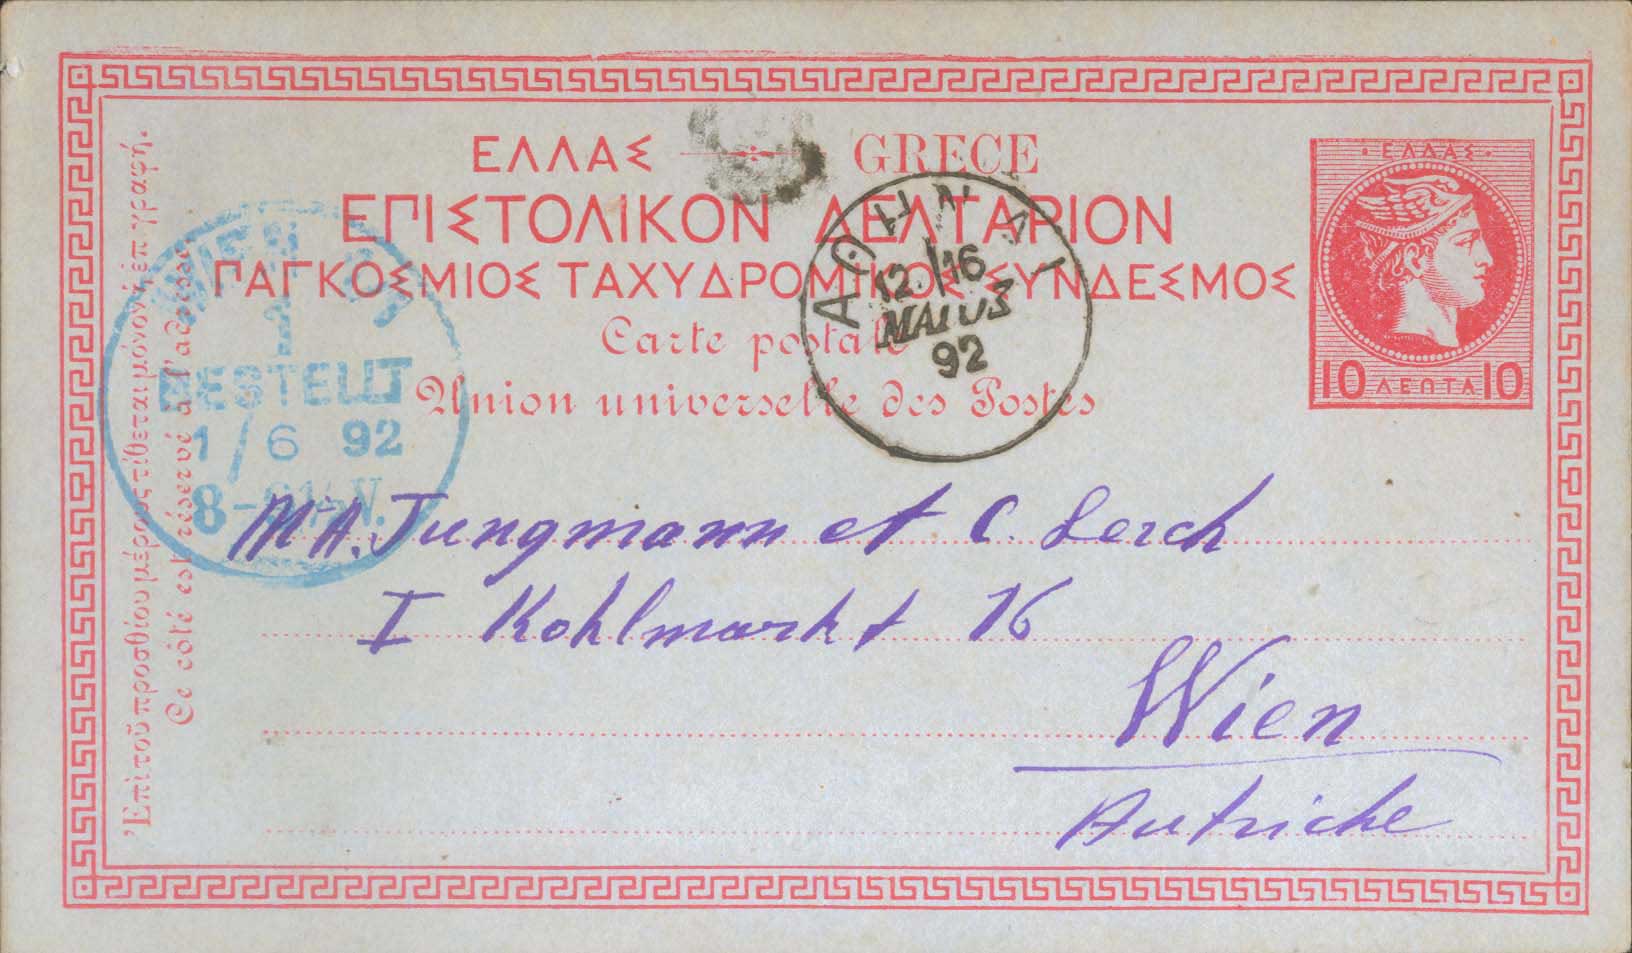 ΕΛΛΑΣ GRECE
ΕΠΙΣΤΟΛΙΚΟΝ ΔΕΛΤΑΡΙΟΝ
ΠΑΓΚΟΣΜΙΟΣ ΤΑΧΥΔΡΟΜΙΚΟΣ ΣΥΝΔΕΣΜΟΣ
Carte postale
Union universelle des Postes
·ΕΛΛΑΣ·
10 ΛΕΠΤΑ 10
ΑΘΗΝΑΙ
12. 16
ΜΑΙΟΣ
92
WIEN
1
BESTELLT
1/6 92
8-9½V.
Ἐπὶ τοῦ προσθίου μέρους τίθεται μόνον ἡ ἐπιγραφή.
Ce côté est réservé à l'adresse.
M A. Jungmann et C. Lerch
I Kohlmarkt 16
Wien
Autriche